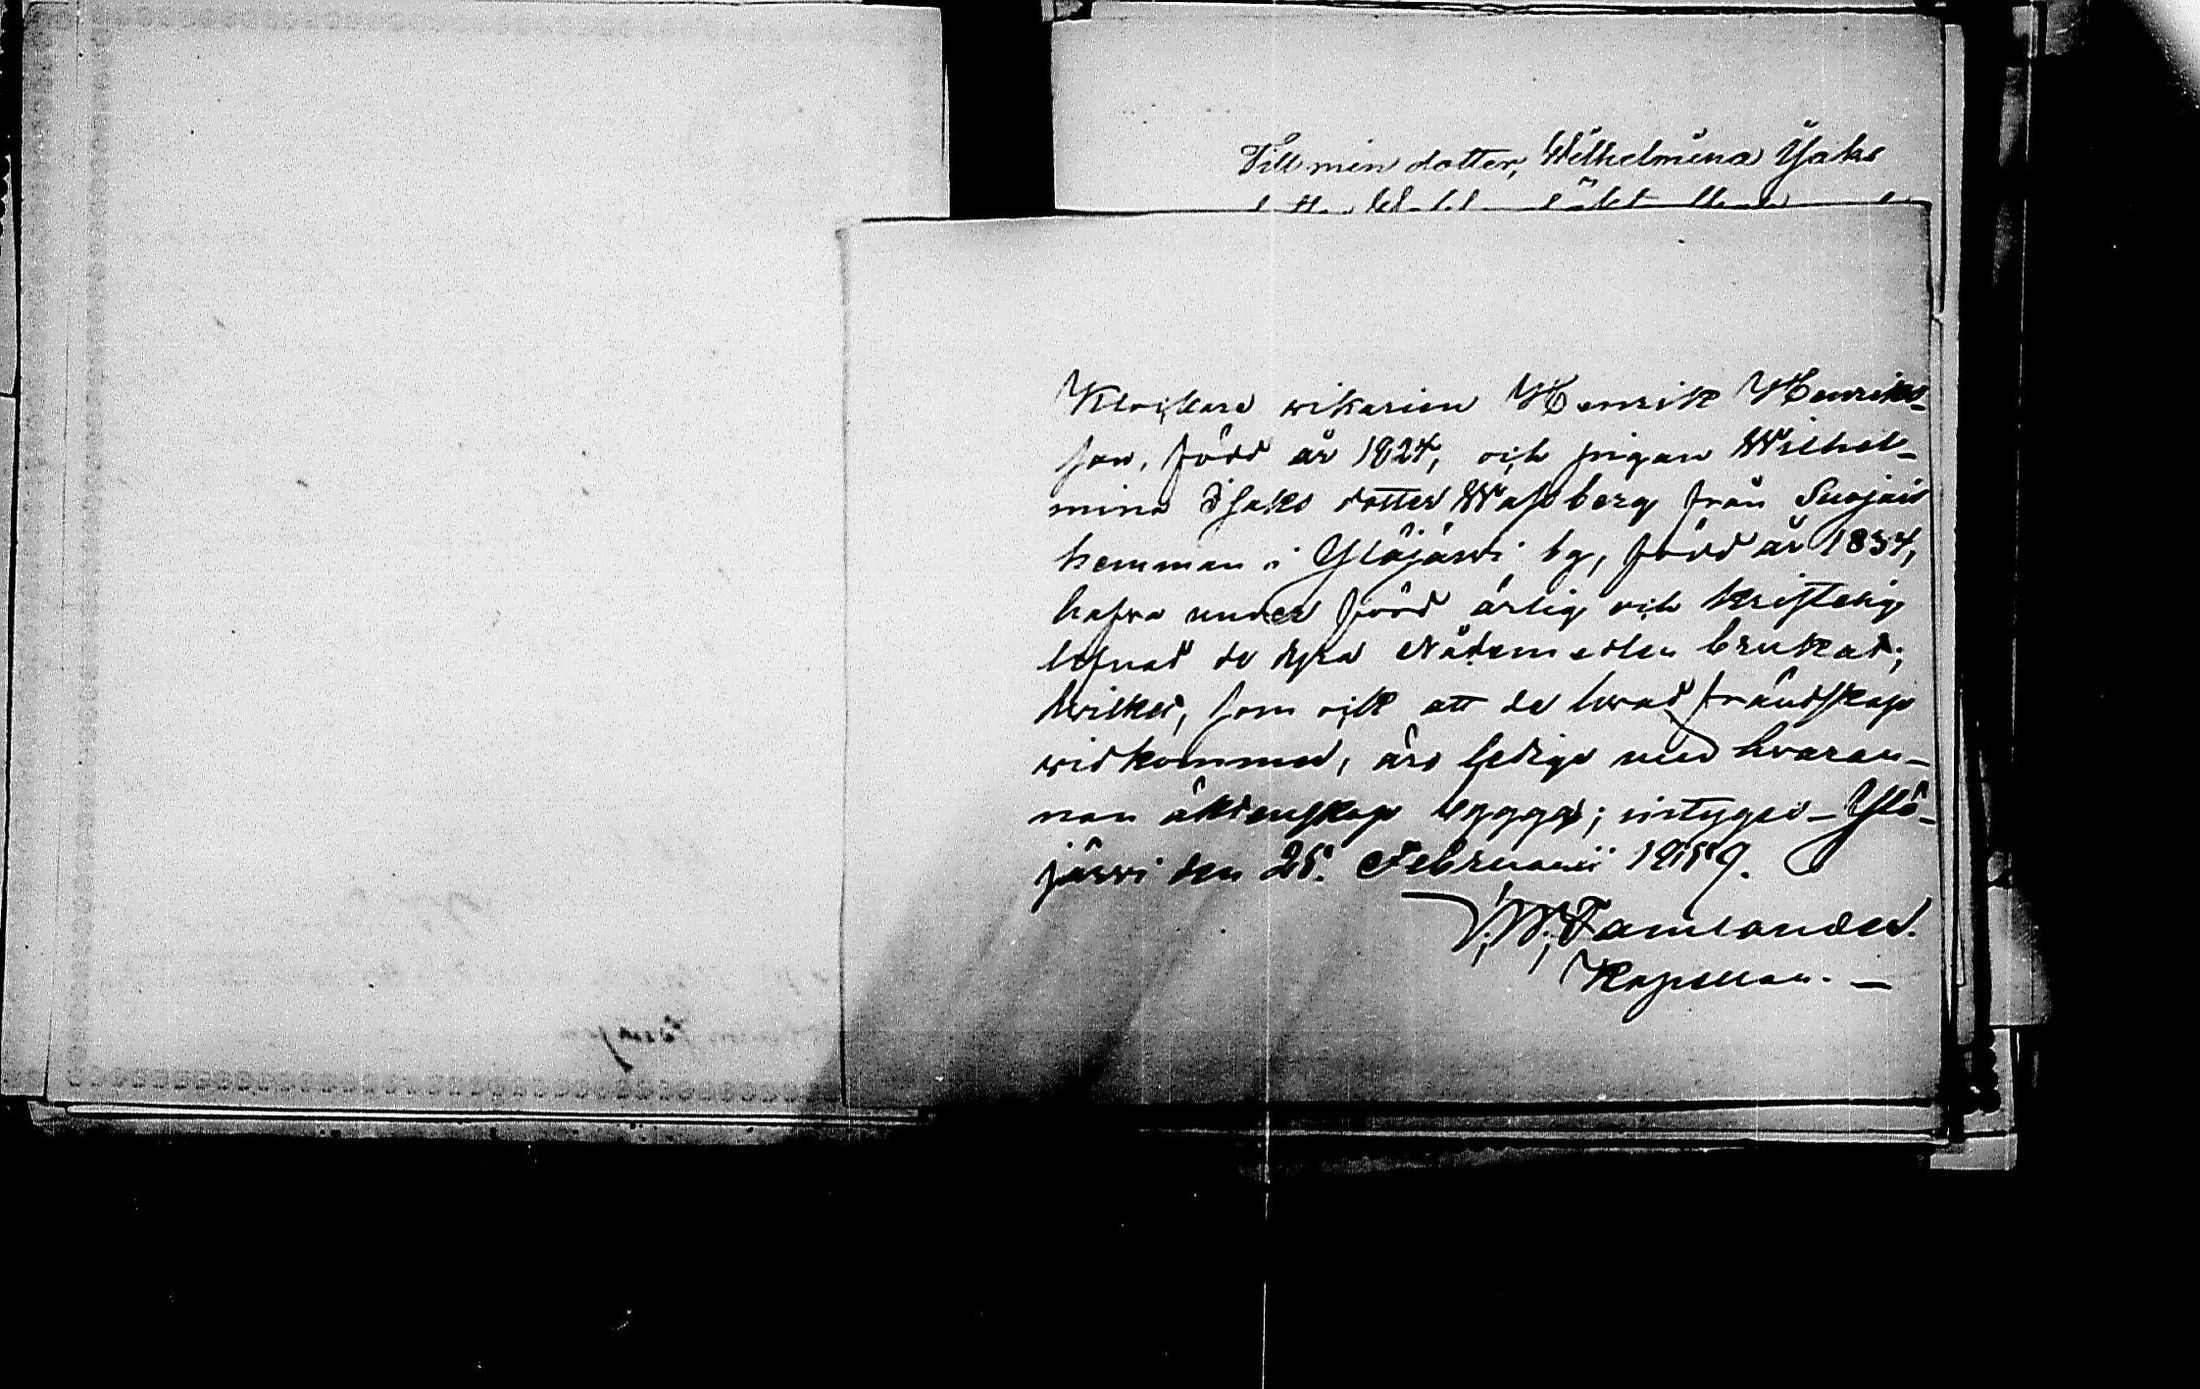 Till min dotter, Wilhelmina Isaks
Klockare wikarien Henrik Henriks-
son, född år 1824, och pigan Wilhel-
mina Isaks dotter Wahlberg från Suojais
hemman i Ylöjärvi by, född år 1834,
hafva under förd ärlig och kristelig
lefnad de dyra Nådemedlen brukat;
hvilket, som ock att de hvad frändskap
widkommer, äro ledige med hvaran-
nan äktenskap bygga; intygas - Ylö-
järvi den 25. Februarii 1859.
Kapellan. -